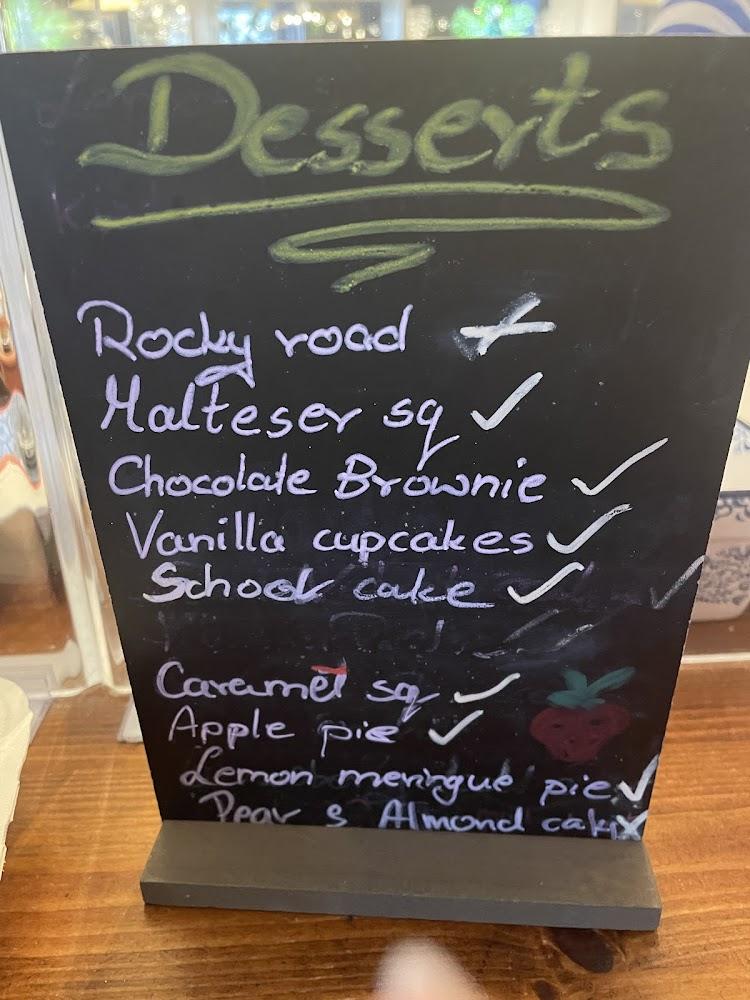 Desserts
Rocky road ✗
Malteser sq ✓
Chocolate Brownie ✓
Vanilla cupcakes ✓
School cake ✓
Caramel sq ✓
Apple pie ✓
Lemon meringue pie ✓
Pear & Almond cake ✗